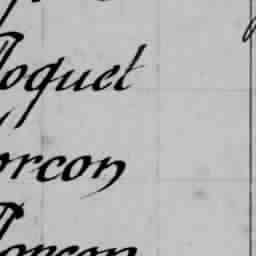 oquet
orcon
orcon